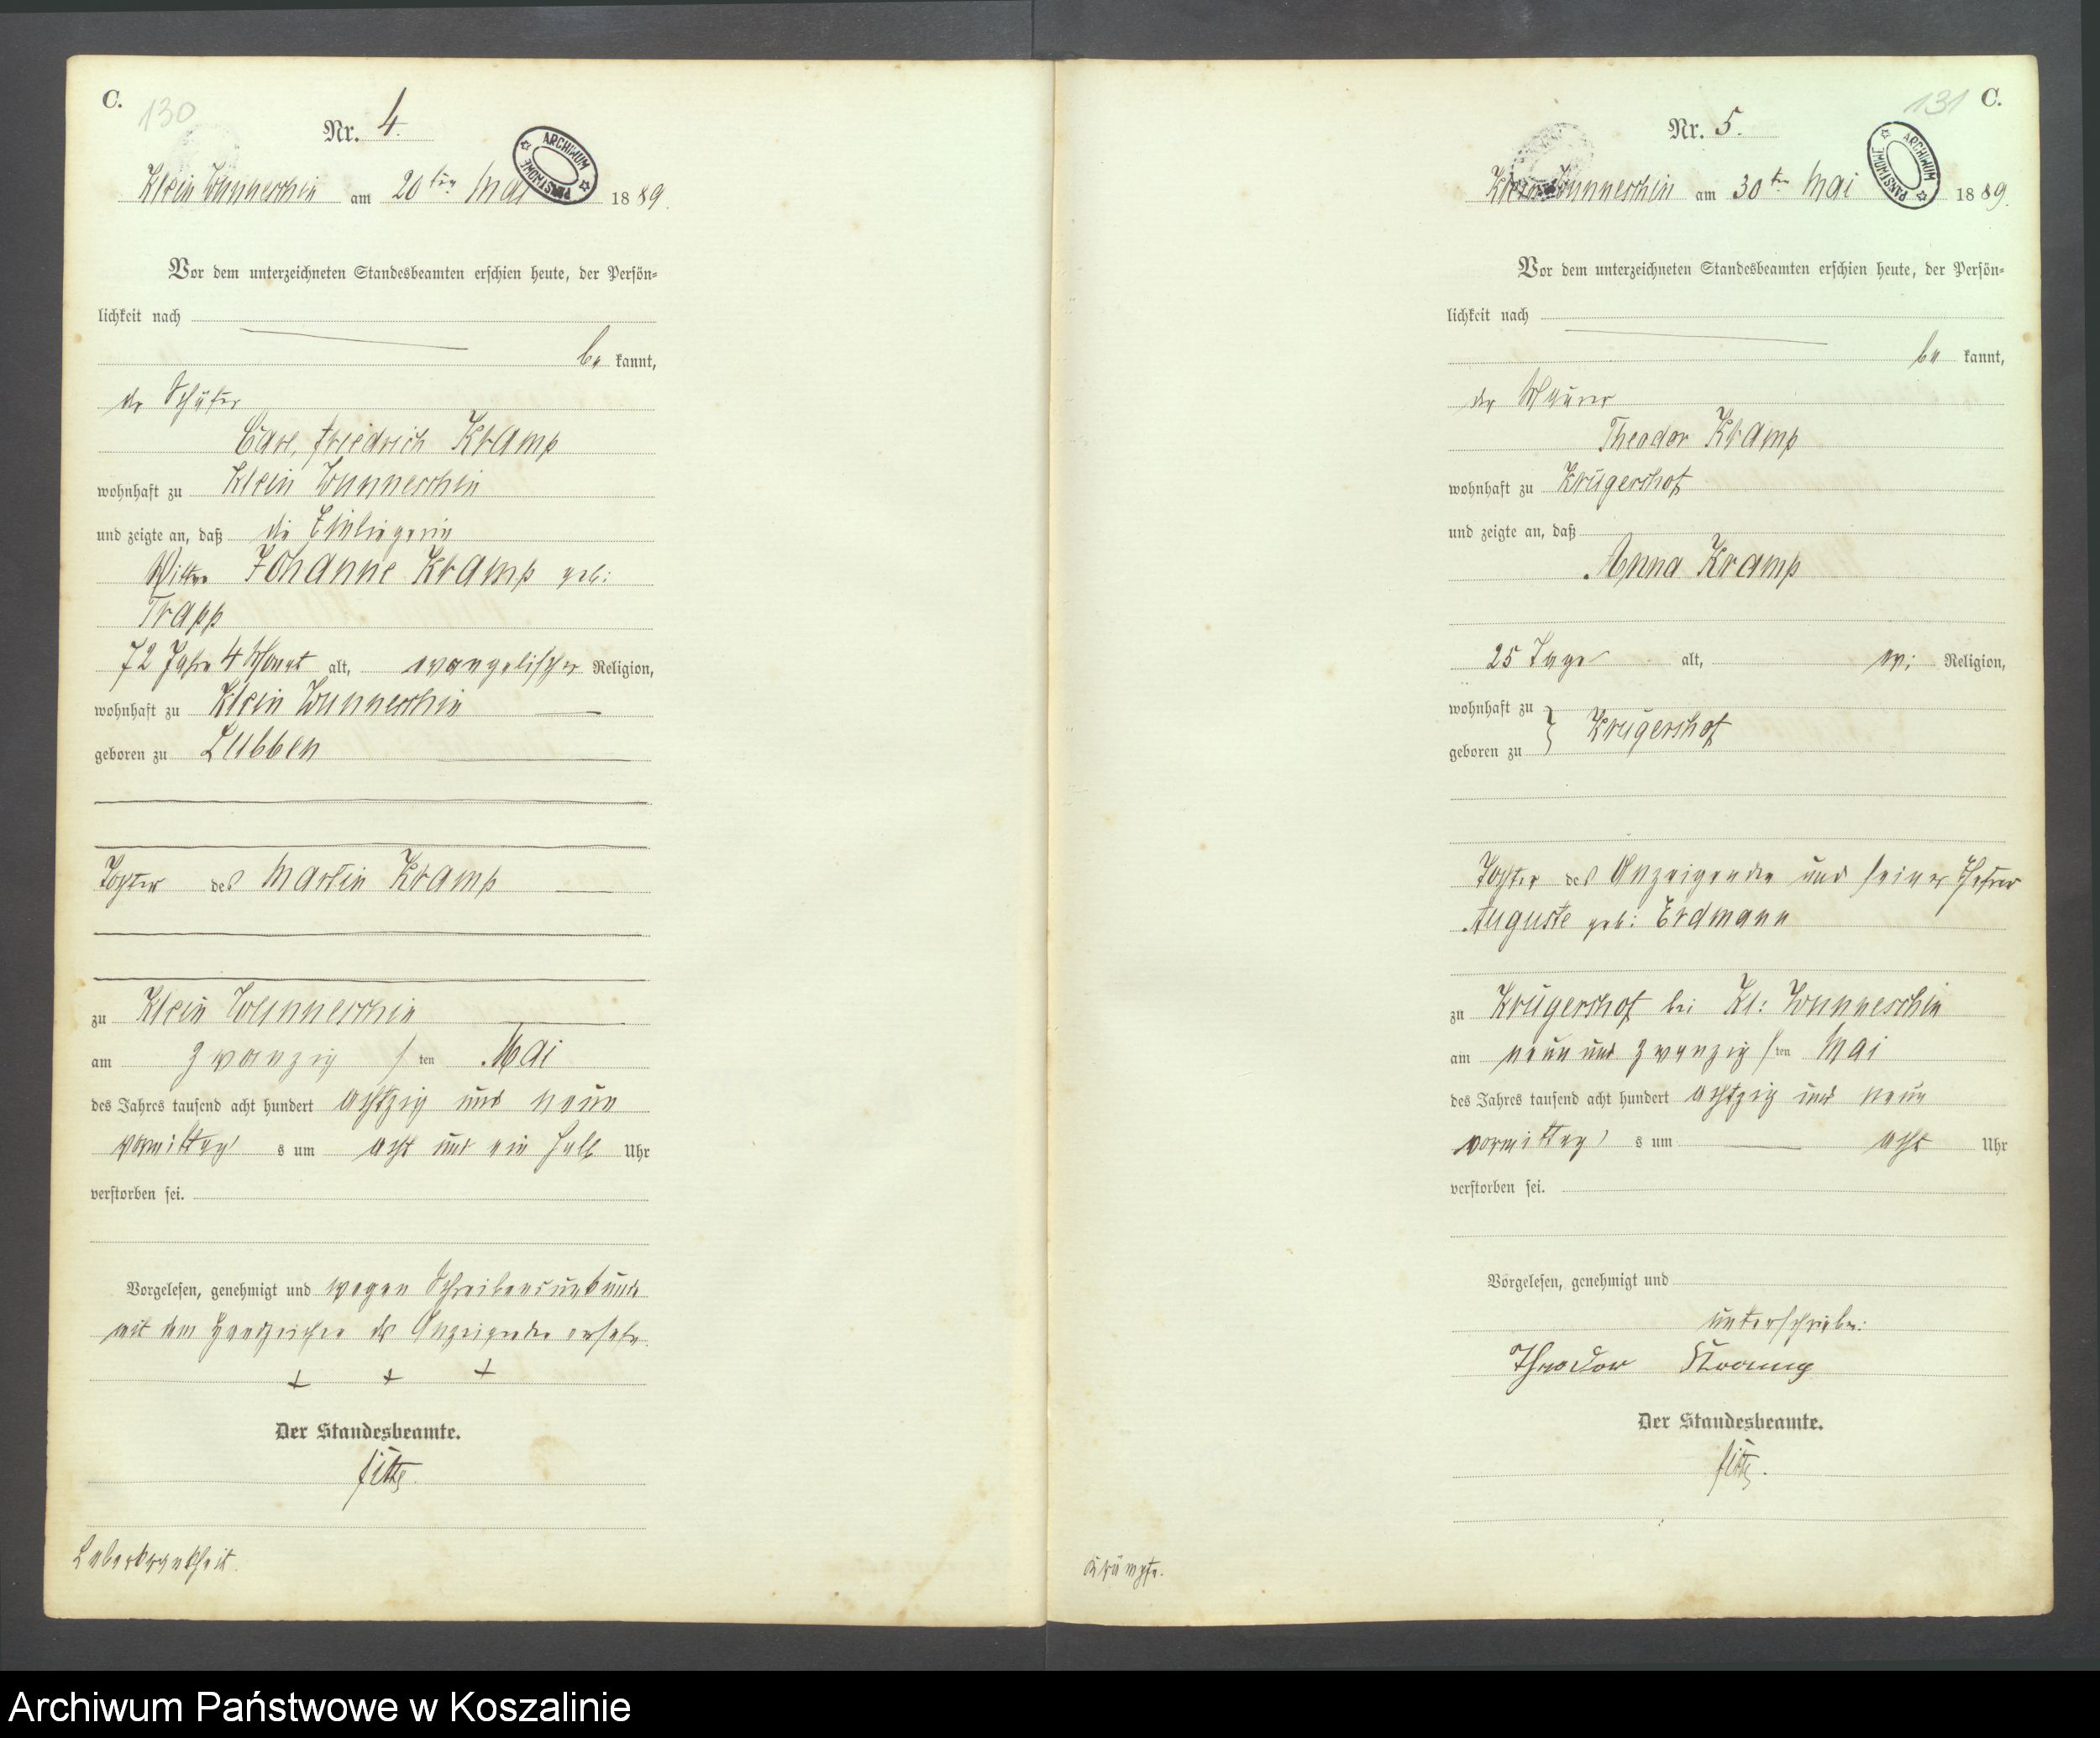 C.
130
Nr. 4.
ARCHIWUM PAŃSTWOWE
Klein Wunneschin am 20ten Mai 1889.
Vor dem unterzeichneten Standesbeamten erschien heute, der Persön-
lichkeit nach
be kannt,
der Schäfer
Carl, Friedrich Kramp
wohnhaft zu Klein Wunneschin
und zeigte an, daß die Einliegerin
Wittwe Johanne Kramp geb:
Trapp
72 Jahre 4 Monat alt, evangelischer Religion,
wohnhaft zu Klein Wunneschin
geboren zu Lübben
Tochter des Martin Kramp
zu Klein Wunneschin
am zwanzigsten Mai
des Jahres tausend acht hundert achtzig und neun
vormittags um acht und ein halb Uhr
verstorben sei.
Vorgelesen, genehmigt und wegen Schreibensunkunde
mit dem Handzeichen des Anzeigenden versehn.
+ + +
Der Standesbeamte.
Leberkrankheit.
C.
131
Nr. 5.
ARCHIWUM PAŃSTWOWE
Klein Wunneschin am 30ten Mai 1889.
Vor dem unterzeichneten Standesbeamten erschien heute, der Persön-
lichkeit nach
be kannt,
der Maurer
Theodor Kramp
wohnhaft zu Krügershof
und zeigte an, daß
Anna Kramp
25 Tage alt, ev: Religion,
wohnhaft zu
geboren zu } Krügershof
Tochter des Anzeigenden und seiner Ehefrau
Auguste geb: Erdmann
zu Krügershof bei Kl: Wunneschin
am neun und zwanzigsten Mai
des Jahres tausend acht hundert achtzig und neun
vormittags um acht Uhr
verstorben sei.
Vorgelesen, genehmigt und
unterschrieben:
Theodor Kramp
Der Standesbeamte.
Krämpfe.
Archiwum Państwowe w Koszalinie